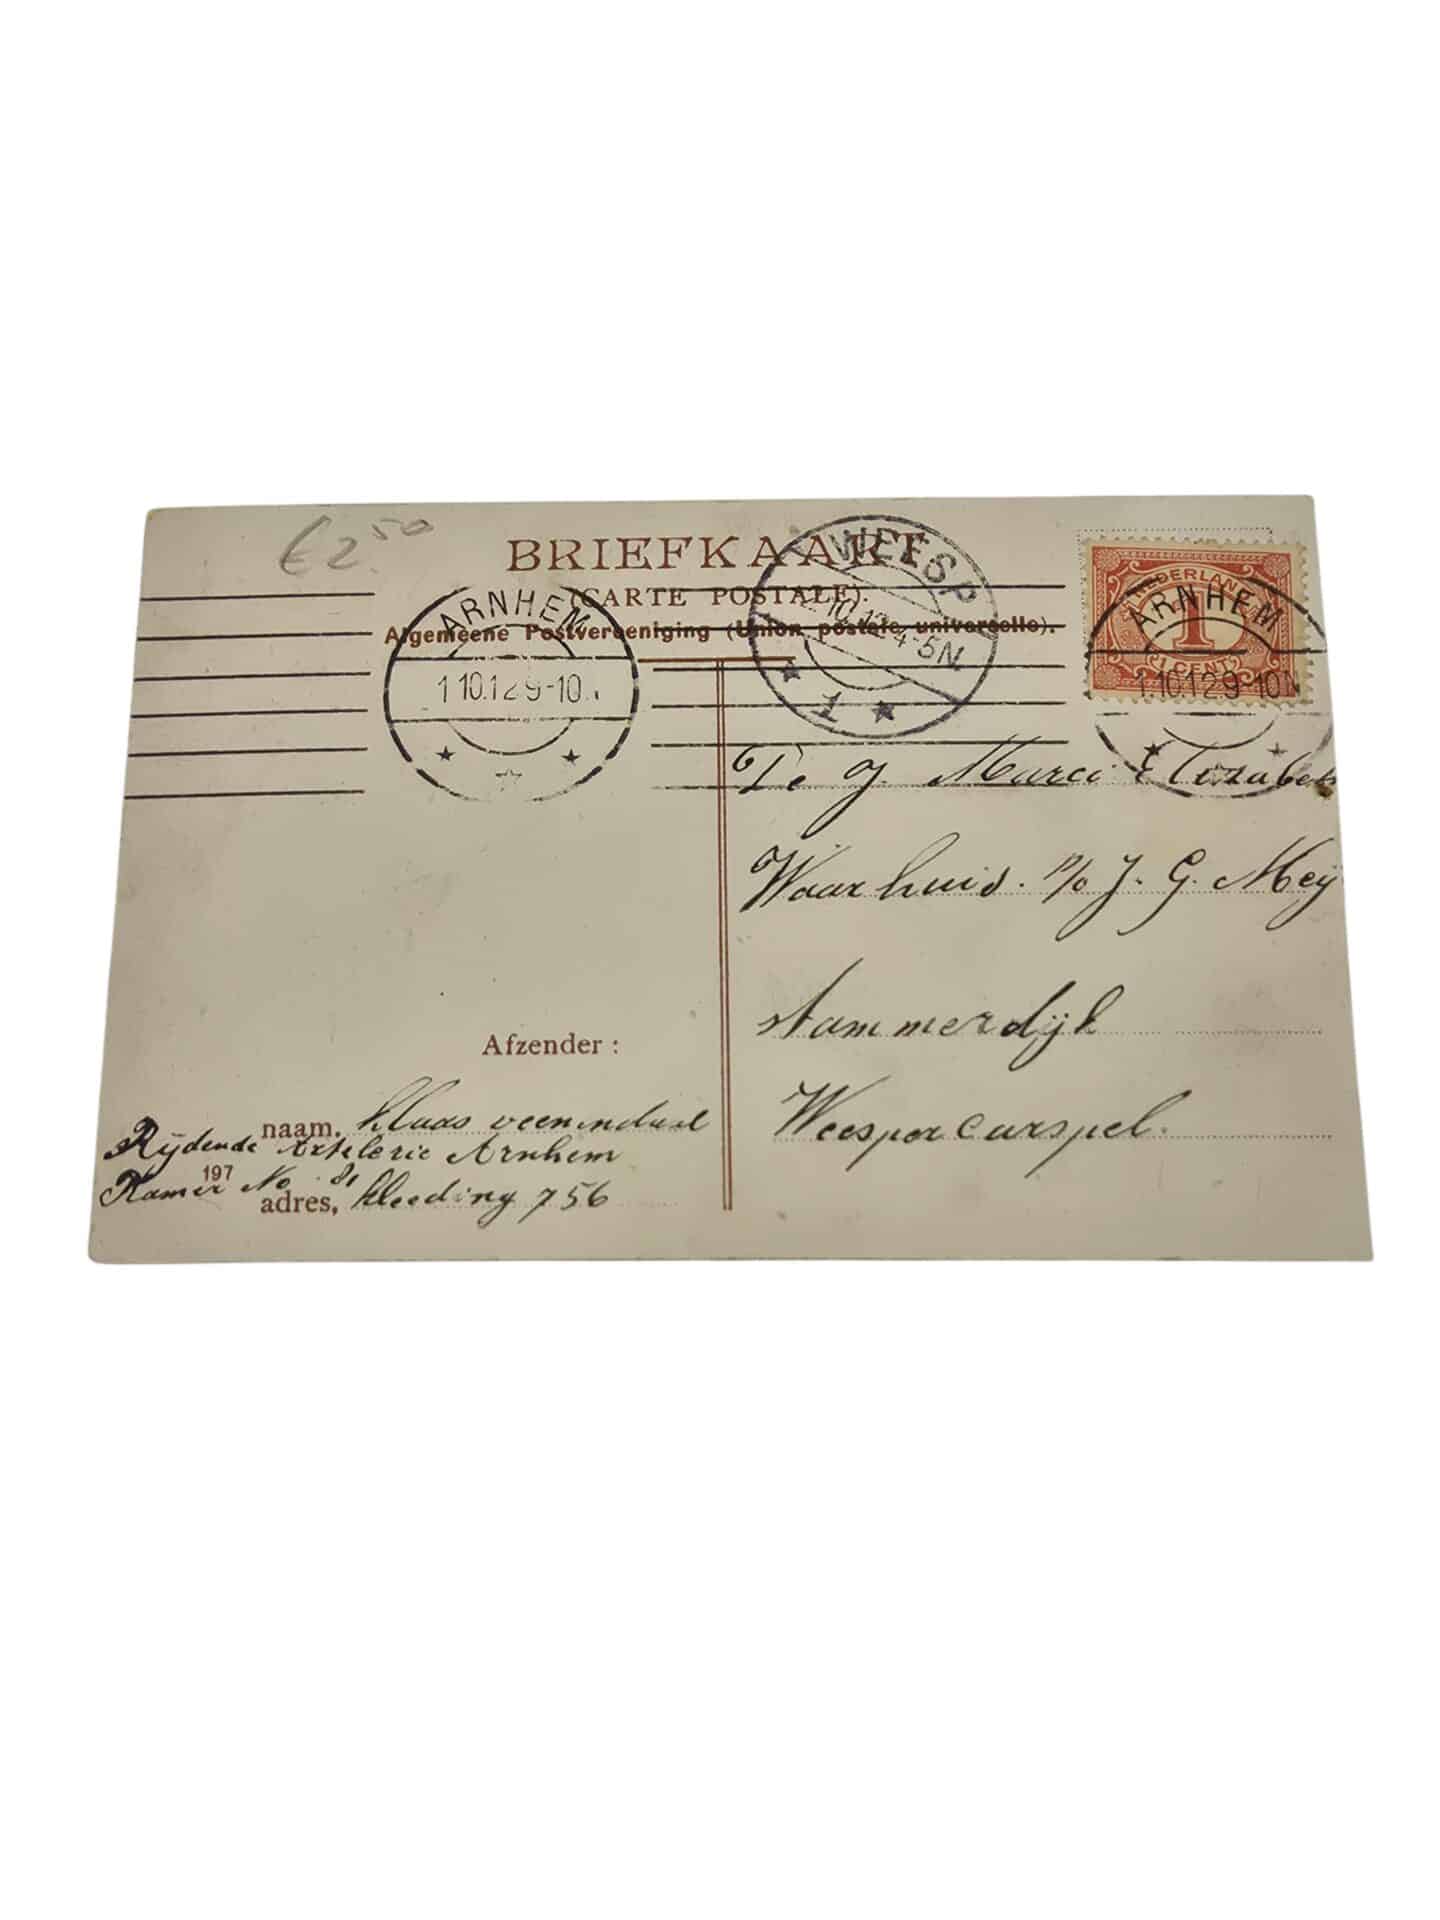 €2.50
BRIEFKAART
(CARTE POSTALE).
Algemeene Postvereeniging (Union postale universelle).
ARNHEM
1 10.12 9-10 N
WEESP
10.12 4-5N
1
NEDERLAND
1
1 CENT
ARNHEM
1.10.12 9-10N
Te J. Marei Elizabeth
Waarhuis. p/o J. G. Meij
Aammerdijk
Weespercarspel.
Afzender:
naam, klaas veenendaal
Rijdende Artelerie Arnhem
197
Kamer No 81
adres, kleeding 756